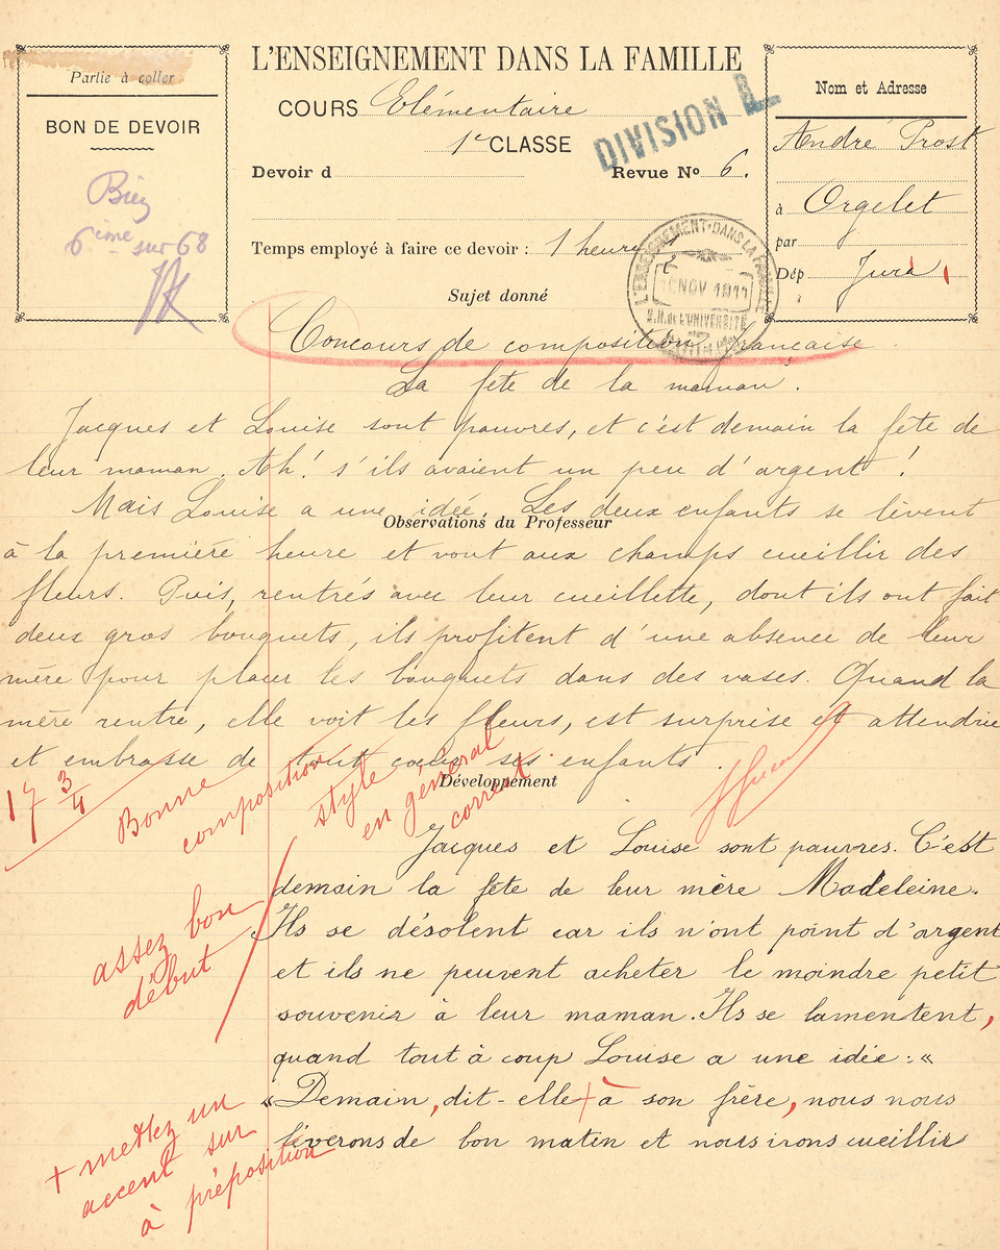 Partie à coller
BON DE DEVOIR
Bien
6ième sur 68
L'ENSEIGNEMENT DANS LA FAMILLE
COURS Elémentaire
1re CLASSE
DIVISION
Devoir d
Revue No 6.
Temps employé à faire ce devoir : 1 heure
L'ENSEIGNEMENT DANS LA FAMILLE
NOV 1911
S.H. de L'UNIVERSITÉ
Nom et Adresse
André Prost
à Orgelet
par
Dép Jura
Sujet donné
Concours de composition française
La fête de la maman.
Jacques et Louise sont pauvres, et c'est demain la fête de
leur maman. Ah! s'ils avaient un peu d'argent !
Mais Louise a une idée. Les deux enfants se lèvent
Observations du Professeur
à la première heure et vont aux champs cueillir des
fleurs. Puis, rentrés avec leur cueillette, dont ils ont fait
deux gros bouquets, ils profitent d'une absence de leur
mère pour placer les bouquets dans des vases. Quand la
mère rentre, elle voit les fleurs, est surprise et attendrie
et embrasse de tout coeur ses enfants.
Développement
17 3/4
Bonne
composition
style
en général
correct
Jacques et Louise sont pauvres. C'est
demain la fête de leur mère Madeleine.
Ils se désolent car ils n'ont point d'argent
et ils ne peuvent acheter le moindre petit
souvenir à leur maman. Ils se lamentent,
quand tout à coup Louise a une idée : «
« Demain, dit-elle + à son frère, nous nous
lèverons de bon matin et nous irons cueillir
assez bon
début
+ mettez un
accent sur
à préposition